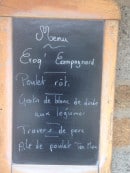 Menu
Croq' Campagnard
Poulet rôti
de blanc de dinde
aux légumes
Travers de porc
de poulet